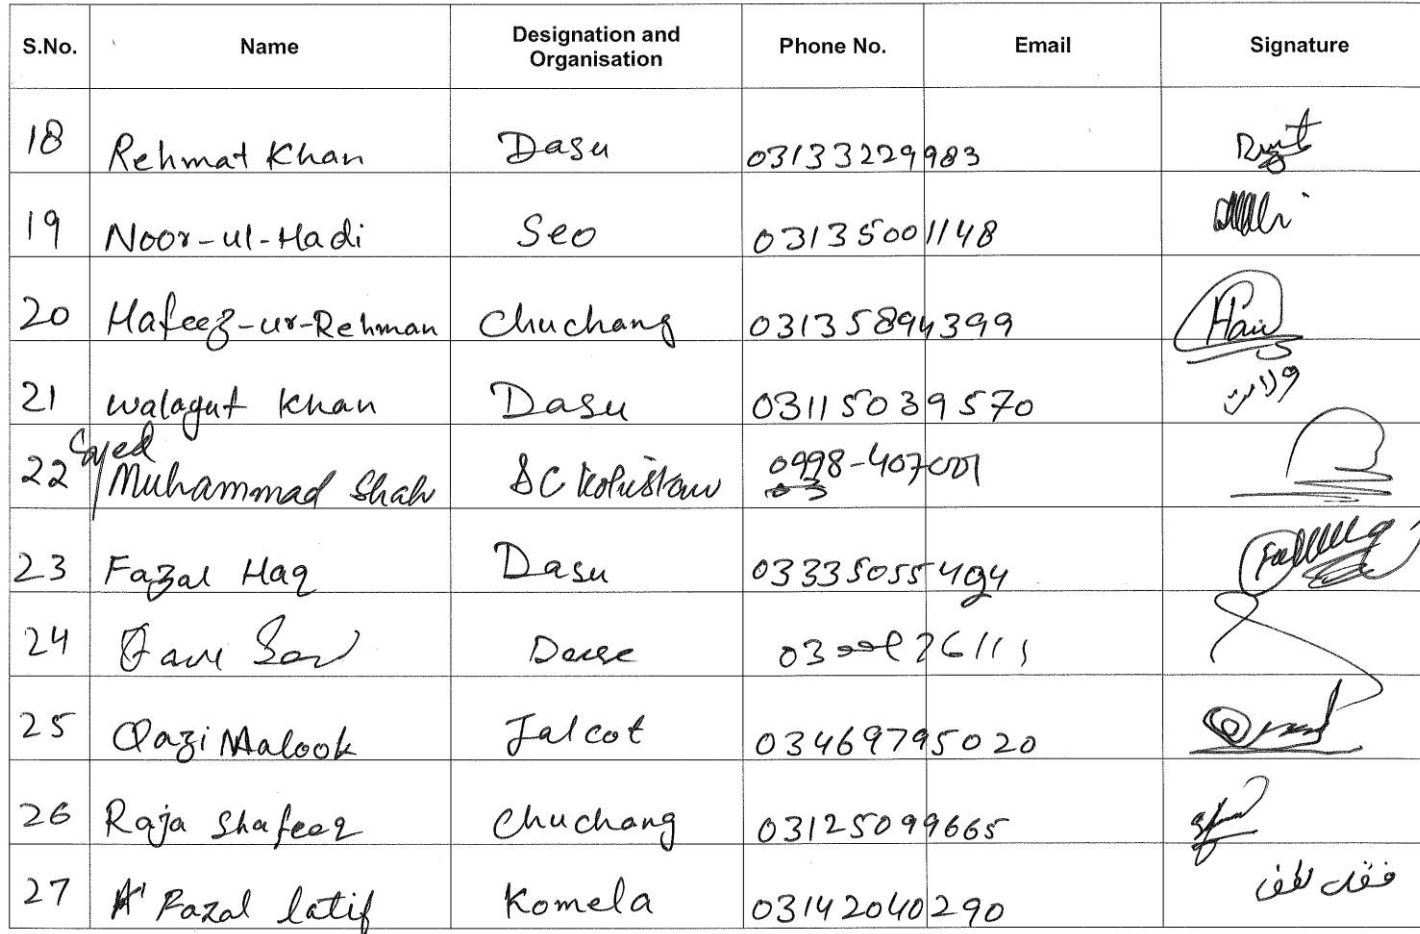 S.No. Name Designation and Organisation Phone No. Email Signature
18 Rehmat Khan Dasu 03133229983
19 Noor-ul-Hadi Seo 03135001148
20 Hafeez-ur-Rehman Chuchang 03135894399
21 walagut Khan Dasu 03115039570 ولایت
Sayed
22 Muhammad Shah DC Kohistan 0998-407001
23 Fazal Haq Dasu
24
25 Qazi Malook Jalcot 03469795020
26 Raja Shafeeq Chuchang 03125099665
27 Fazal latif Komela 03142040290